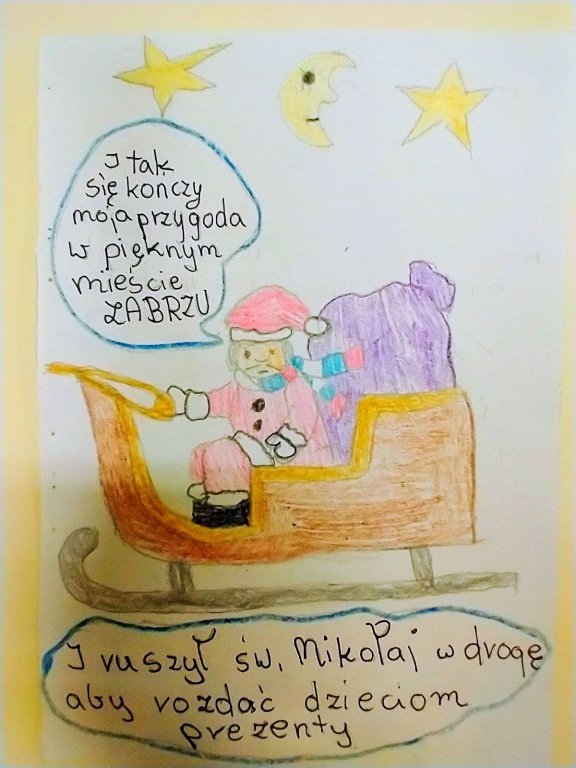 I tak
się konczy
moja przygoda
w pięknym
mieście
ZABRZU
I ruszył św. Mikołaj w drogę
aby rozdać dzieciom
prezenty